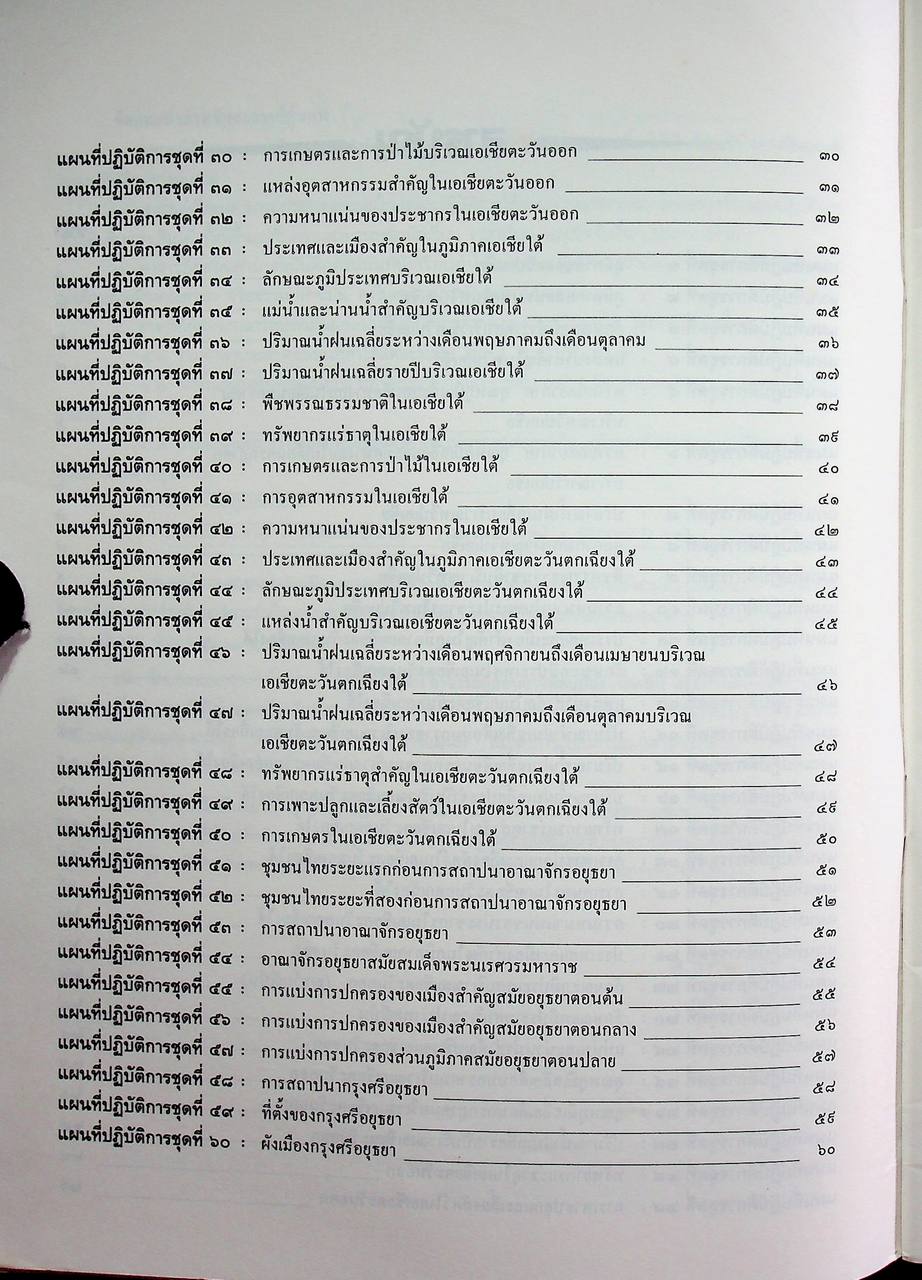 แผนที่ปฏิบัติการชุดที่ ๓๐ : การเกษตรและการป่าไม้บริเวณเอเชียตะวันออก ๓๐
แผนที่ปฏิบัติการชุดที่ ๓๑ : แหล่งอุตสาหกรรมสำคัญในเอเชียตะวันออก ๓๑
แผนที่ปฏิบัติการชุดที่ ๓๒ : ความหนาแน่นของประชากรในเอเชียตะวันออก ๓๒
แผนที่ปฏิบัติการชุดที่ ๓๓ : ประเทศและเมืองสำคัญในภูมิภาคเอเชียใต้ ๓๓
แผนที่ปฏิบัติการชุดที่ ๓๔ : ลักษณะภูมิประเทศบริเวณเอเชียใต้ ๓๔
แผนที่ปฏิบัติการชุดที่ ๓๕ : แม่น้ำและน่านน้ำสำคัญบริเวณเอเชียใต้ ๓๕
แผนที่ปฏิบัติการชุดที่ ๓๖ : ปริมาณน้ำฝนเฉลี่ยระหว่างเดือนพฤษภาคมถึงเดือนตุลาคม ๓๖
แผนที่ปฏิบัติการชุดที่ ๓๗ : ปริมาณน้ำฝนเฉลี่ยรายปีบริเวณเอเชียใต้ ๓๗
แผนที่ปฏิบัติการชุดที่ ๓๘ : พืชพรรณธรรมชาติในเอเชียใต้ ๓๘
แผนที่ปฏิบัติการชุดที่ ๓๙ : ทรัพยากรแร่ธาตุในเอเชียใต้ ๓๙
แผนที่ปฏิบัติการชุดที่ ๔๐ : การเกษตรและการป่าไม้ในเอเชียใต้ ๔๐
แผนที่ปฏิบัติการชุดที่ ๔๑ : การอุตสาหกรรมในเอเชียใต้ ๔๑
แผนที่ปฏิบัติการชุดที่ ๔๒ : ความหนาแน่นของประชากรในเอเชียใต้ ๔๒
แผนที่ปฏิบัติการชุดที่ ๔๓ : ประเทศและเมืองสำคัญในภูมิภาคเอเชียตะวันตกเฉียงใต้ ๔๓
แผนที่ปฏิบัติการชุดที่ ๔๔ : ลักษณะภูมิประเทศบริเวณเอเชียตะวันตกเฉียงใต้ ๔๔
แผนที่ปฏิบัติการชุดที่ ๔๕ : แหล่งน้ำสำคัญบริเวณเอเชียตะวันตกเฉียงใต้ ๔๕
แผนที่ปฏิบัติการชุดที่ ๔๖ : ปริมาณน้ำฝนเฉลี่ยระหว่างเดือนพฤศจิกายนถึงเดือนเมษายนบริเวณ
เอเชียตะวันตกเฉียงใต้ ๔๖
แผนที่ปฏิบัติการชุดที่ ๔๗ : ปริมาณน้ำฝนเฉลี่ยระหว่างเดือนพฤษภาคมถึงเดือนตุลาคมบริเวณ
เอเชียตะวันตกเฉียงใต้ ๔๗
แผนที่ปฏิบัติการชุดที่ ๔๘ : ทรัพยากรแร่ธาตุสำคัญในเอเชียตะวันตกเฉียงใต้ ๔๘
แผนที่ปฏิบัติการชุดที่ ๔๙ : การเพาะปลูกและเลี้ยงสัตว์ในเอเชียตะวันตกเฉียงใต้ ๔๙
แผนที่ปฏิบัติการชุดที่ ๕๐ : การเกษตรในเอเชียตะวันตกเฉียงใต้ ๕๐
แผนที่ปฏิบัติการชุดที่ ๕๑ : ชุมชนไทยระยะแรกก่อนการสถาปนาอาณาจักรอยุธยา ๕๑
แผนที่ปฏิบัติการชุดที่ ๕๒ : ชุมชนไทยระยะที่สองก่อนการสถาปนาอาณาจักรอยุธยา ๕๒
แผนที่ปฏิบัติการชุดที่ ๕๓ : การสถาปนาอาณาจักรอยุธยา ๕๓
แผนที่ปฏิบัติการชุดที่ ๕๔ : อาณาจักรอยุธยาสมัยสมเด็จพระนเรศวรมหาราช ๕๔
แผนที่ปฏิบัติการชุดที่ ๕๕ : การแบ่งการปกครองของเมืองสำคัญสมัยอยุธยาตอนต้น ๕๕
แผนที่ปฏิบัติการชุดที่ ๕๖ : การแบ่งการปกครองของเมืองสำคัญสมัยอยุธยาตอนกลาง ๕๖
แผนที่ปฏิบัติการชุดที่ ๕๗ : การแบ่งการปกครองส่วนภูมิภาคสมัยอยุธยาตอนปลาย ๕๗
แผนที่ปฏิบัติการชุดที่ ๕๘ : การสถาปนากรุงศรีอยุธยา ๕๘
แผนที่ปฏิบัติการชุดที่ ๕๙ : ที่ตั้งของกรุงศรีอยุธยา ๕๙
แผนที่ปฏิบัติการชุดที่ ๖๐ : ผังเมืองกรุงศรีอยุธยา ๖๐